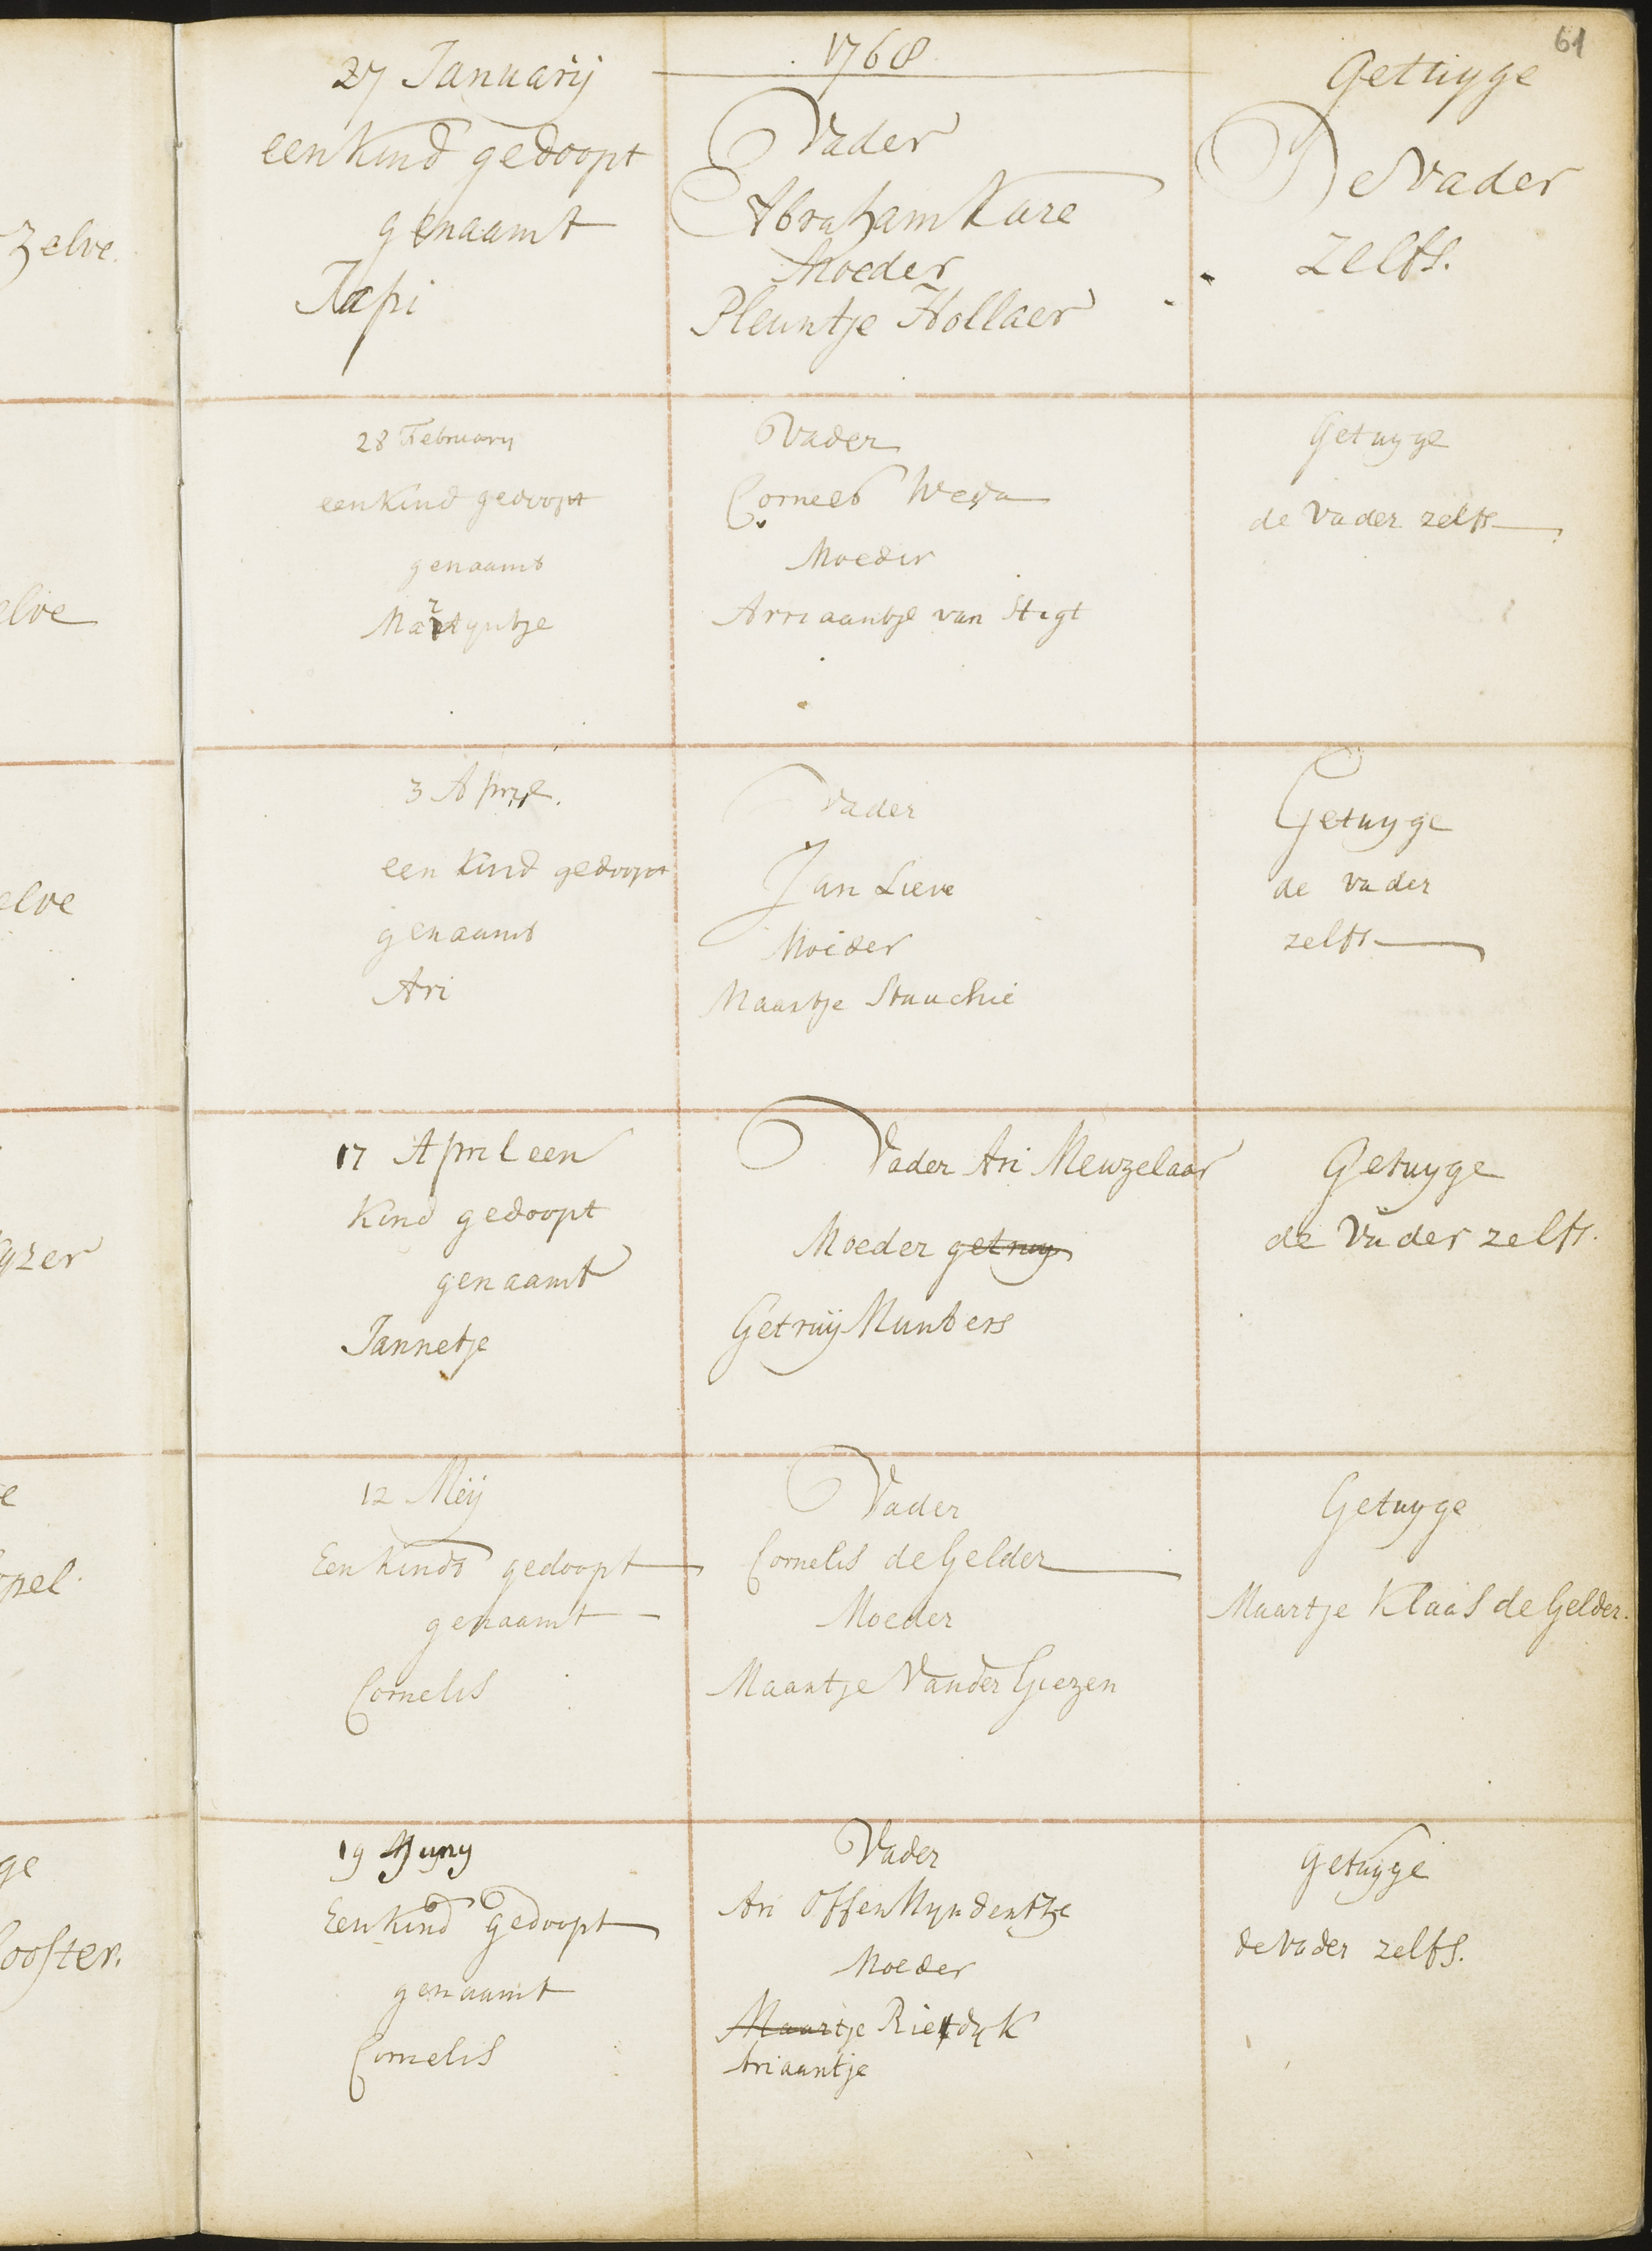 61
1768
27 Januarij
een kind gedoopt
genaamt
Japi
Vader
Abraham Kare
Moeder
Pleuntje Hollaer
Getuyge
De Vader
zelfs.
28 February
een kind gedoopt
genaamt
Vader
Moeder
Arriaantje van Stigt
Getuyge
de Vader zelfs
3 April.
een kind gedoopt
genaamt
Ari
Vader
Jan Lieve
Moeder
Maartje
Getuyge
de vader
zelfs
17 April een
kind gedoopt
genaamt
Jannetje
Vader Ari Meuzelaar
Moeder getruy
Getruij Munters
Getuyge
de Vader zelfs.
12 Meij
Een kindt gedoopt
genaamt
Cornelis
Vader
Cornelis de Gelder
Moeder
Maantje Vander Giezen
Getuyge
Maartje Klaas de Gelder.
19 Juny
Een kind gedoopt
genaamt
Cornelis
Vader
Ari
Moeder
Maartje Rietdyk
Ariaantje
getuyge
de Vader zelfs.
zelve.
elve
elve
yzer
e
pel.
ge
ooster.